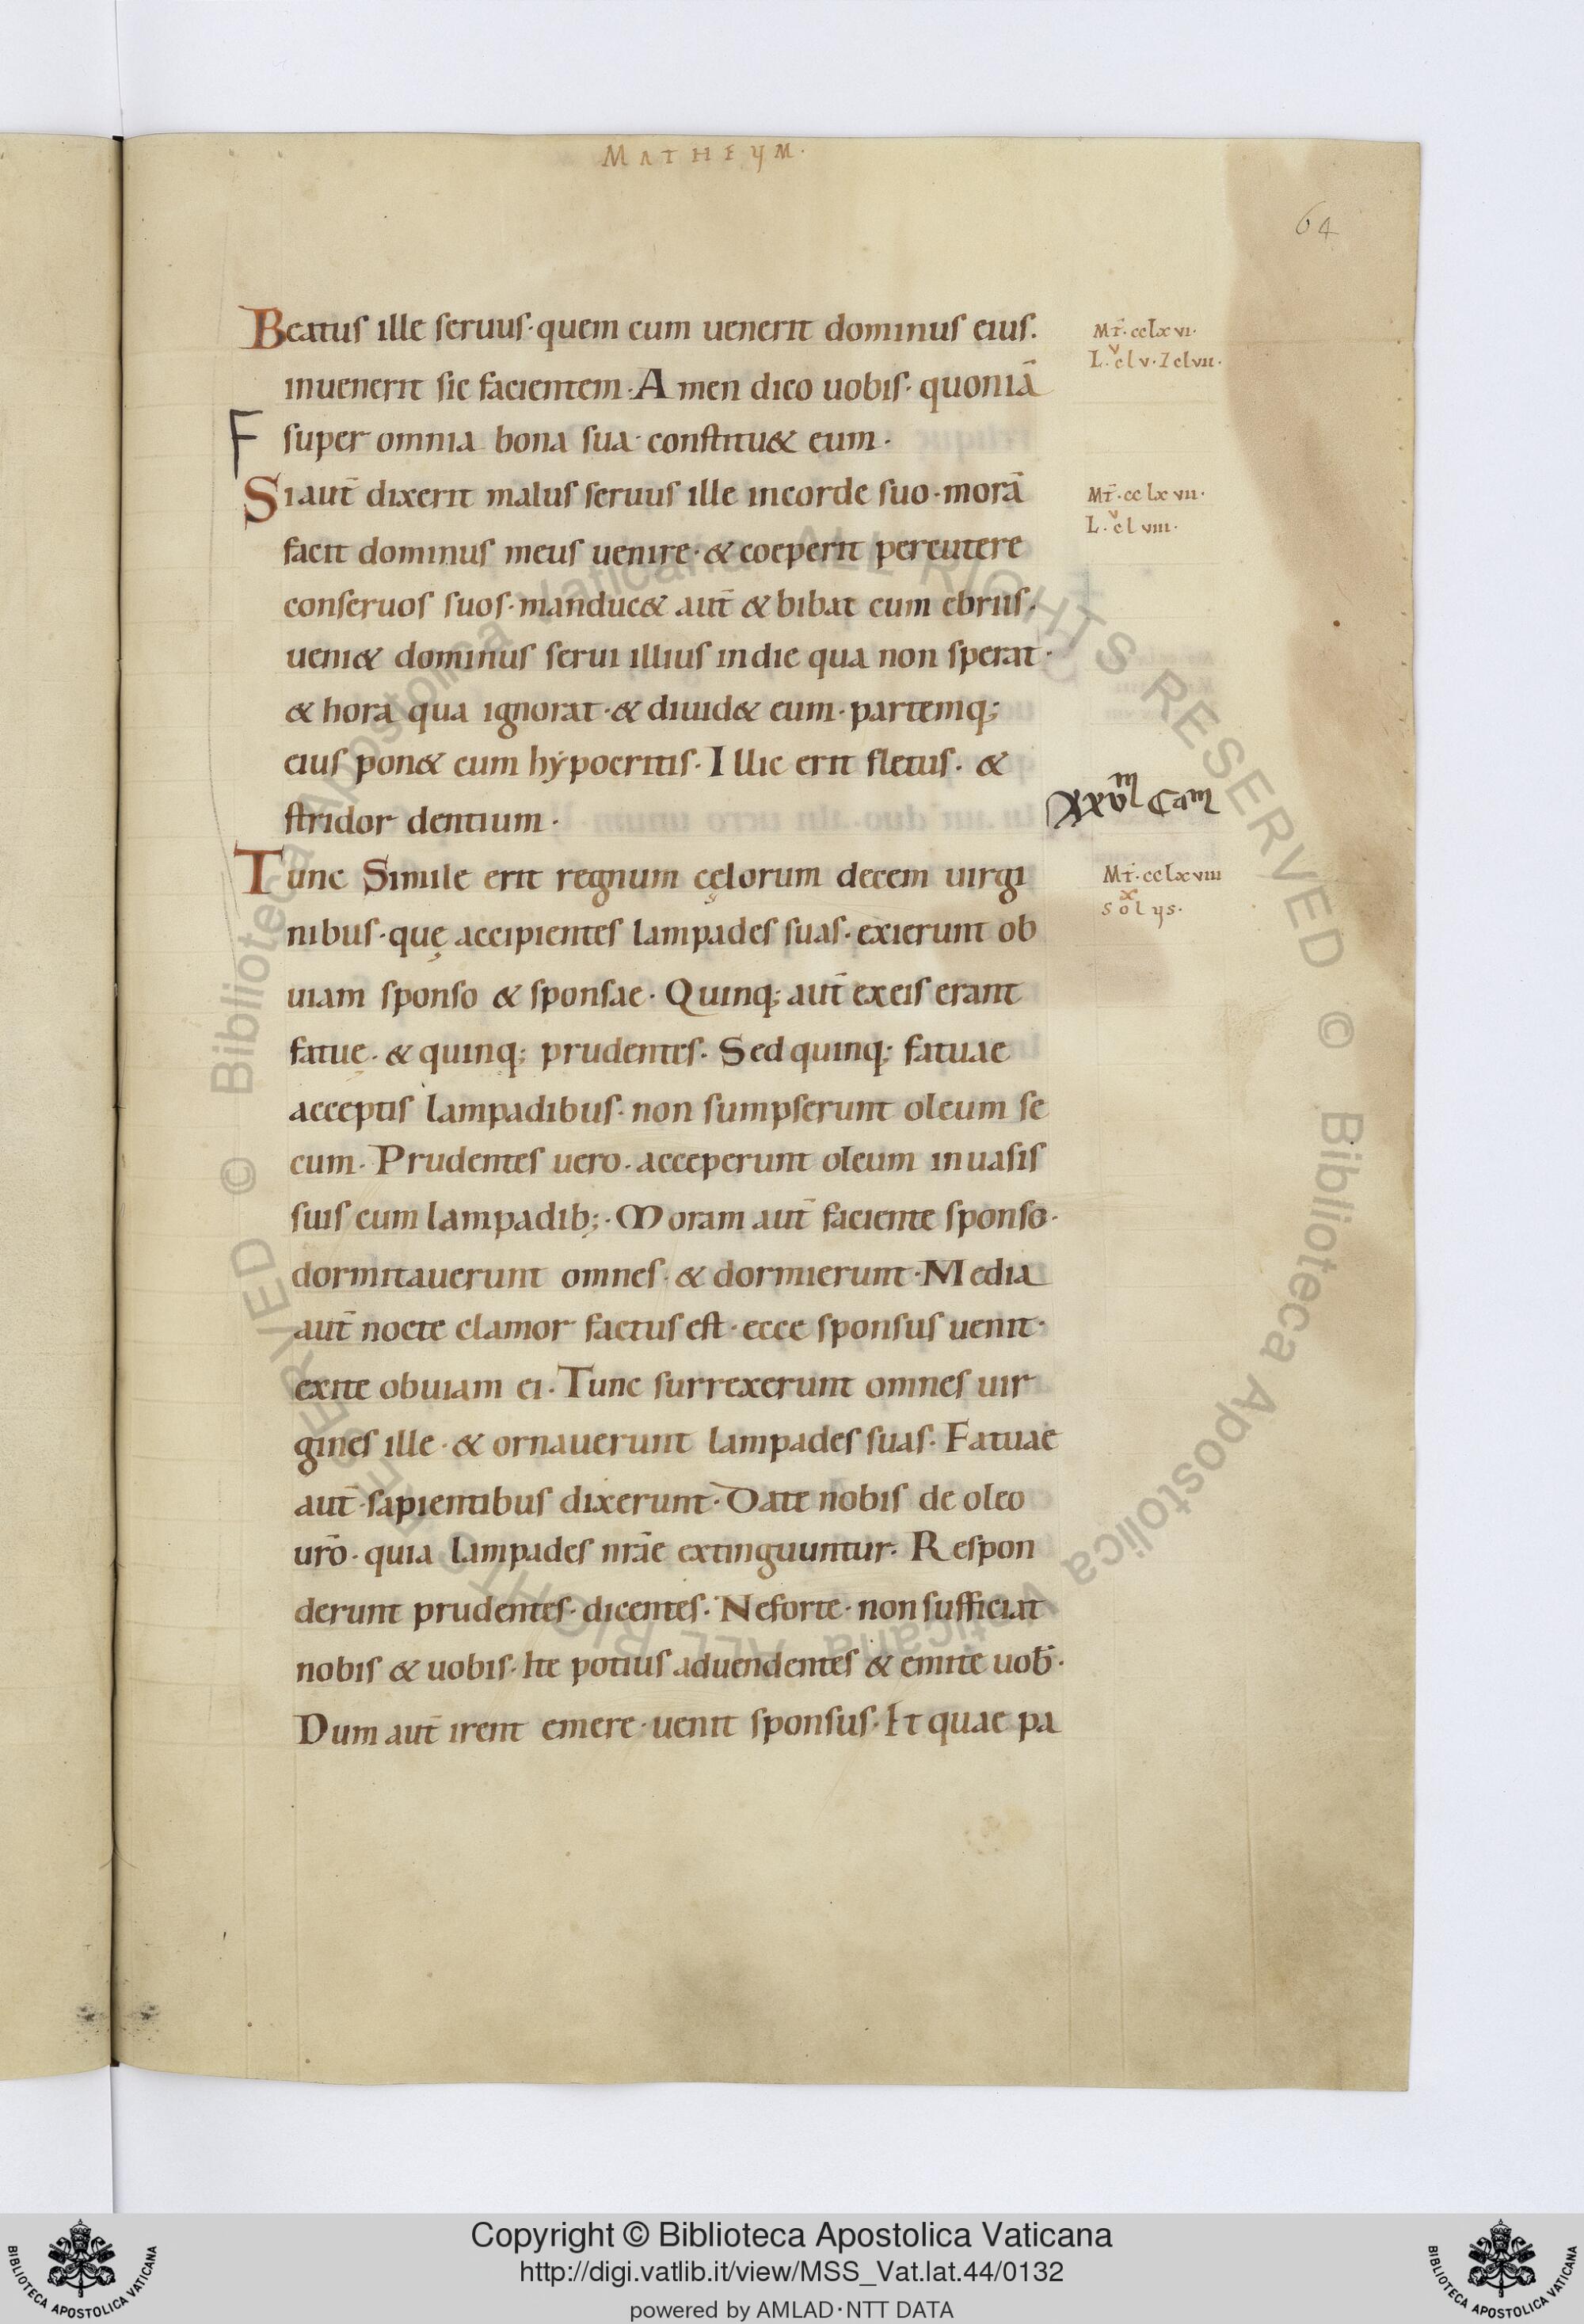 MATHEYM.
64
Beatus ille seruus·quem cum uenerit dominus eius.
inuenerit sic facientem·Amen dico uobis·quoniā
F
super omnia bona sua·constitu& eum·
Si aut̄ dixerit malus seruus ille incorde suo·morā
facit dominus meus uenire·& coeperit percutere
conseruos suos·manduc& aut̄ & bibat cum ebriis·
ueni& dominus serui illius indie qua non sperat·
& hora qua ignorat·& diuid& eum·partemq;
eius pon& cum hẏpocritis·Illic erit fletus·&
stridor dentium·
Tunc Simile erit regnum cęlorum decem uirgi
nibus·quę accipientes lampades suas·exierunt ob
uiam sponso & sponsae·Quinq; aut̄ exeis erant
fatuę·& quinq; prudentes·Sed quinq; fatuae
acceptis lampadibus·non sumpserunt oleum se
cum·Prudentes uero·acceperunt oleum inuasis
suis cum lampadib;·Moram aut̄ faciente sponso·
dormitauerunt omnes·& dormierunt·Media
aut̄ nocte clamor factus est·ecce sponsus uenit·
exite obuiam ei·Tunc surrexerunt omnes uir
gines ille·& ornauerunt lampades suas·Fatuae
aut̄·sapientibus dixerunt·Date nobis de oleo
ur̄o·quia lampades nr̄ae extinguuntur·Respon
derunt prudentes·dicentes·Neforte·non sufficiat
nobis & uobis·Ite potius aduendentes & emite uob̄·
Dum aut̄ irent emere·uenit sponsus·Et quae pa
Mt̄·cclxvi·
v
L·clv·7clvii·
Mt̄·cclxvii·
v
L·clviii·
Mt̄·cclxviii
x
solus·
© Biblioteca Apostolica Vaticana ALL RIGHTS RESERVED
© Biblioteca Apostolica Vaticana ALL RIGHTS RESERVED
BIBLIOTECA APOSTOLICA VATICANA
Copyright © Biblioteca Apostolica Vaticana
http://digi.vatlib.it/view/MSS_Vat.lat.44/0132
powered by AMLAD·NTT DATA
BIBLIOTECA APOSTOLICA VATICANA